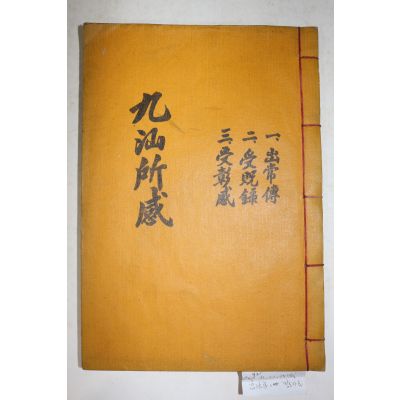 九汕所感
一、出常傳
二、受貺錄
三、受彰感